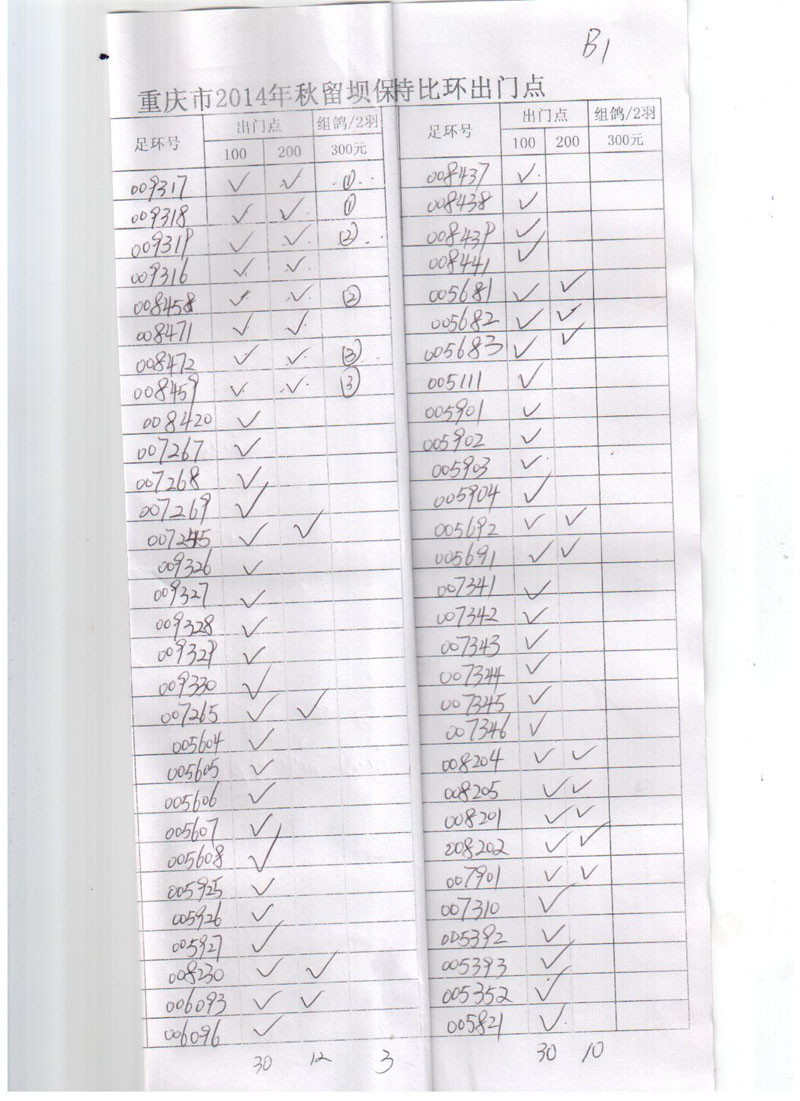 B1
重庆市2014年秋留坝保特比环出门点
足环号 出门点 组鸽/2羽 足环号 出门点 组鸽/2羽
100 200 300元 100 200 300元
009317 ✓ ✓ ① 008437 ✓
009318 ✓ ✓ ① 008438 ✓
009319 ✓ ✓ ② 008439 ✓
009316 ✓ ✓ 008441 ✓
008458 ✓ ✓ ② 005681 ✓ ✓
008471 ✓ ✓ 005682 ✓ ✓
008472 ✓ ✓ ③ 005683 ✓ ✓
008459 ✓ ✓ ③ 005111 ✓
008420 ✓ 005901 ✓
007267 ✓ 005902 ✓
007268 ✓ 005903 ✓
007269 ✓ 005904 ✓
007245 ✓ ✓ 005692 ✓ ✓
009326 ✓ 005691 ✓ ✓
009327 ✓ 007341 ✓
009328 ✓ 007342 ✓
009329 ✓ 007343 ✓
009330 ✓ 007344 ✓
007265 ✓ ✓ 007345 ✓
005604 ✓ 007346 ✓
005605 ✓ 008204 ✓ ✓
005606 ✓ 008205 ✓ ✓
005607 ✓ 008201 ✓ ✓
005608 ✓ 008202 ✓ ✓
005925 ✓ 007901 ✓ ✓
005926 ✓ 007310 ✓
005927 ✓ 005392 ✓
008230 ✓ ✓ 005393 ✓
006093 ✓ ✓ 005352 ✓
006096 ✓ 005821 ✓
30 12 3 30 10